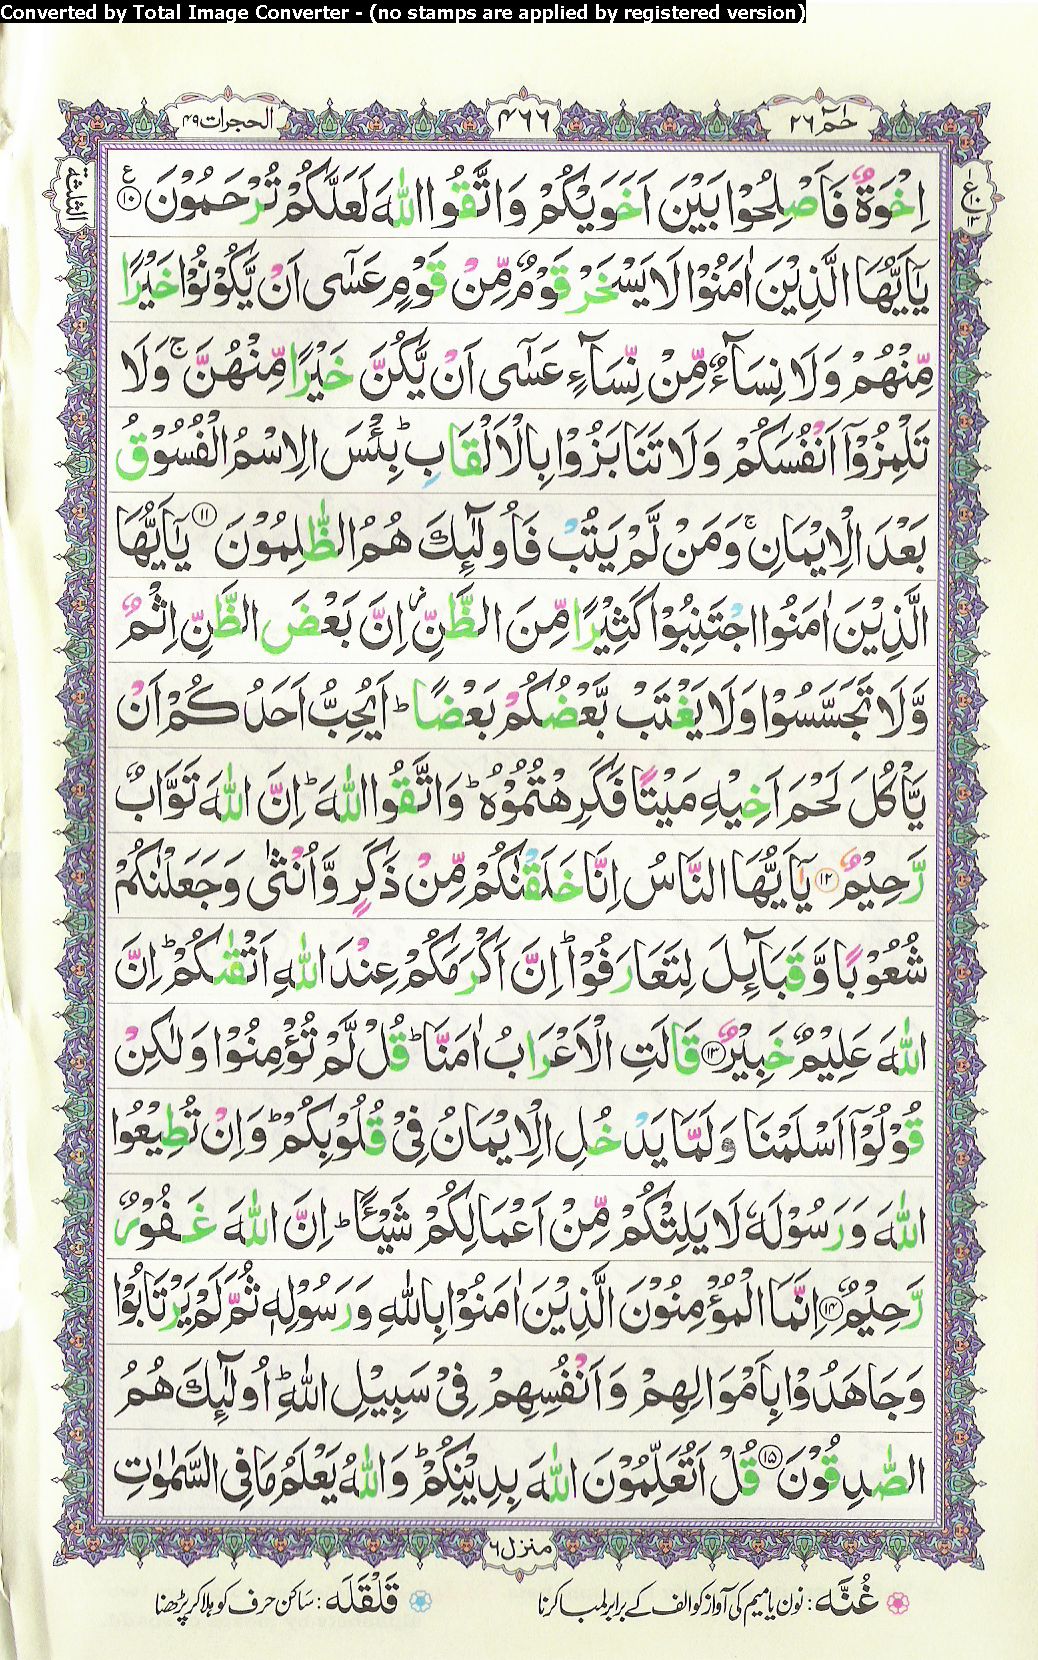 Converted by Total Image Converter - (no stamps are applied by registered version)
حٰمٓ ٢٦
٤٦٦
الحجرات ٤٩
اِخْوَةٌ فَاَصْلِحُوْا بَيْنَ اَخَوَيْكُمْ وَاتَّقُوا اللّٰهَ لَعَلَّكُمْ تُرْحَمُوْنَ ۝١٠
يٰٓاَيُّهَا الَّذِيْنَ اٰمَنُوْا لَا يَسْخَرْ قَوْمٌ مِّنْ قَوْمٍ عَسٰٓى اَنْ يَّكُوْنُوْا خَيْرًا
مِّنْهُمْ وَلَا نِسَآءٌ مِّنْ نِّسَآءٍ عَسٰٓى اَنْ يَّكُنَّ خَيْرًا مِّنْهُنَّ ۚ وَلَا
تَلْمِزُوْٓا اَنْفُسَكُمْ وَلَا تَنَابَزُوْا بِالْاَلْقَابِ ؕ بِئْسَ الِاسْمُ الْفُسُوْقُ
بَعْدَ الْاِيْمَانِ ۚ وَمَنْ لَّمْ يَتُبْ فَاُولٰٓئِكَ هُمُ الظّٰلِمُوْنَ ۝١١ يٰٓاَيُّهَا
الَّذِيْنَ اٰمَنُوا اجْتَنِبُوْا كَثِيْرًا مِّنَ الظَّنِّ ز اِنَّ بَعْضَ الظَّنِّ اِثْمٌ
وَّلَا تَجَسَّسُوْا وَلَا يَغْتَبْ بَّعْضُكُمْ بَعْضًا ؕ اَيُحِبُّ اَحَدُكُمْ اَنْ
يَّاْكُلَ لَحْمَ اَخِيْهِ مَيْتًا فَكَرِهْتُمُوْهُ ؕ وَاتَّقُوا اللّٰهَ ؕ اِنَّ اللّٰهَ تَوَّابٌ
رَّحِيْمٌ ۝١٢ يٰٓاَيُّهَا النَّاسُ اِنَّا خَلَقْنٰكُمْ مِّنْ ذَكَرٍ وَّاُنْثٰى وَجَعَلْنٰكُمْ
شُعُوْبًا وَّقَبَآئِلَ لِتَعَارَفُوْا ؕ اِنَّ اَكْرَمَكُمْ عِنْدَ اللّٰهِ اَتْقٰىكُمْ ؕ اِنَّ
اللّٰهَ عَلِيْمٌ خَبِيْرٌ ۝١٣ قَالَتِ الْاَعْرَابُ اٰمَنَّا ؕ قُلْ لَّمْ تُؤْمِنُوْا وَلٰكِنْ
قُوْلُوْٓا اَسْلَمْنَا وَلَمَّا يَدْخُلِ الْاِيْمَانُ فِيْ قُلُوْبِكُمْ ؕ وَاِنْ تُطِيْعُوا
اللّٰهَ وَرَسُوْلَهٗ لَا يَلِتْكُمْ مِّنْ اَعْمَالِكُمْ شَيْئًا ؕ اِنَّ اللّٰهَ غَفُوْرٌ
رَّحِيْمٌ ۝١٤ اِنَّمَا الْمُؤْمِنُوْنَ الَّذِيْنَ اٰمَنُوْا بِاللّٰهِ وَرَسُوْلِهٖ ثُمَّ لَمْ يَرْتَابُوْا
وَجَاهَدُوْا بِاَمْوَالِهِمْ وَاَنْفُسِهِمْ فِيْ سَبِيْلِ اللّٰهِ ؕ اُولٰٓئِكَ هُمُ
الصّٰدِقُوْنَ ۝١٥ قُلْ اَتُعَلِّمُوْنَ اللّٰهَ بِدِيْنِكُمْ ؕ وَاللّٰهُ يَعْلَمُ مَا فِي السَّمٰوٰتِ
منزل ٦
غُنَّه : نون یا میم کی آواز کو الف کے برابر لمبا کرنا
قَلْقَلَه : ساکن حرف کو ہلا کر پڑھنا